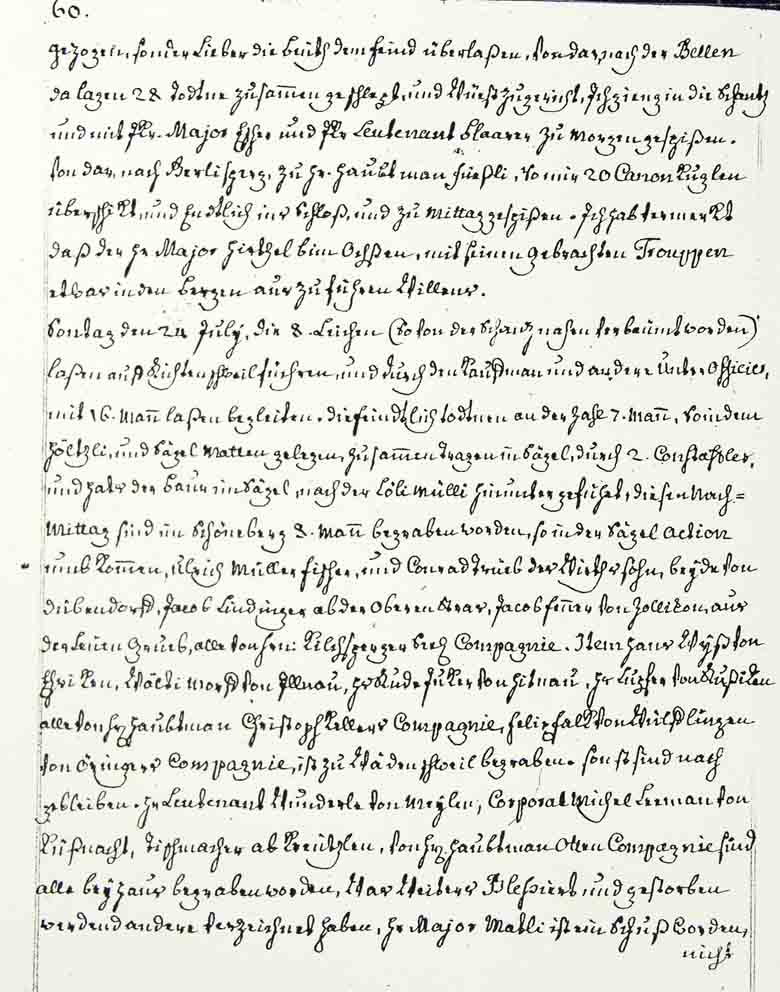 60.
gezogen, sonder Lieber die beüth dem feind überlaßen, Von dar, nach der Bellen
da lagen 28 todtne zusam̄en geschlept, und Wüest zugericht, Ich gieng in die Schantz
und mit Hr. Major Escher und Hr Leutenant blaarer zu morgen gespißen.
Von dar, nach Berlisperg, zu hr. haubt man füeßli, so mir 20 Canon Kuglen
überschikt, und Endtlich ins Schloß, und zu Mittag gespißen. Ich hab vermerkt
daß der hr Major Hirtzel bim Ochßen, mit seinen gebrachten Trouppen
etwas in den bergen aus zu führen Willens.
Sontag den 24 July, die 8. Leichen (so von der Schantz nahen verbäumt worden)
laßen auf Richtenschweil führen, und durch den Kauffman und andere Unter Officier,
mit 16. Man̄ laßen begleiten. die feindtlich todtnen an der Zahl 7. Man̄, so in dem
höltzli, und Sägel Matten gelegen, zusam̄en tragen in Sägel, durch 2. Constafler,
und hats der baur im Sägel, nach der Löli Mülli hinunter geführt, diesen Nach=
Mittag sind im Schöneberg 8. Man̄ begraben worden, so in der Sägel action
umb kom̄en, Ulrich Müller fischer, und Conrad Trüeb des Wirths sohn, beyde von
dübendorff, Jacob Lindinger ab der Oberen Stras, Jacob von Zollikon, aus
der Leüen Grueb, alle von hrn: Kilchsperger Compagnie. Item hans Wyß von
Ehriken, Wälti Morff von Illnau, hs Rudi Juker von hitnau, hs Kupfer von Rußiken
alle von hr haubtman Christoph Kellers Compagnie, felix falk von Wülflingen
von Ôringers Compagnie, ist zu Wädenschweil begraben. sonst sind nach
gebleiben. hr Leutenant Wunderle von Meylen, Corporal Michel Leeman von
Küßnacht, Tischmacher ab Kreützlen, von hr haubtman Otten Compagnie sind
alle bey haus begraben worden, Was Weiters Bleßiert und gestorben
werdend andere verzeichnet haben, hr Major Matli ist ein Schuß Worden,
nicht